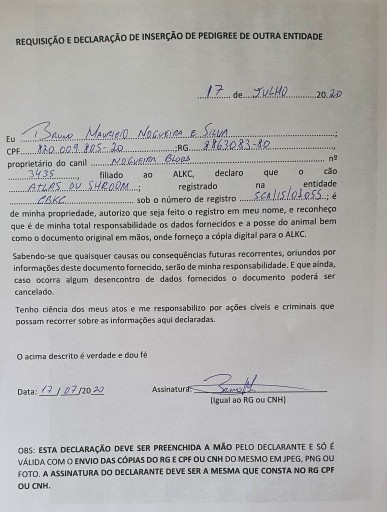 REQUISIÇÃO E DECLARAÇÃO DE INSERÇÃO DE PEDIGREE DE OUTRA ENTIDADE
17 de JULHO 2020
Eu BRUNO MAURICIO NOGUEIRA E SILVA;
CPF 820 009 805-20;RG 8863083-80,
proprietário do canil NOGUEIRA BLOOD nº
3435, filiado ao ALKC, declaro que o cão
ATLAS DU SHROOM; registrado na entidade
CBKC sob o número de registro SCA/15/01055; é
de minha propriedade, autorizo que seja feito o registro em meu nome, e reconheço
que é de minha total responsabilidade os dados fornecidos e a posse do animal bem
como o documento original em mãos, onde forneço a cópia digital para o ALKC.
Sabendo-se que quaisquer causas ou consequências futuras recorrentes, oriundos por
informações deste documento fornecido, serão de minha responsabilidade. E que ainda,
caso ocorra algum desencontro de dados fornecidos o documento poderá ser
cancelado.
Tenho ciência dos meus atos e me responsabilizo por ações cíveis e criminais que
possam recorrer sobre as informações aqui declaradas.
O acima descrito é verdade e dou fé
Data: 17 / 07 /2020 Assinatura:
(Igual ao RG ou CNH)
OBS: ESTA DECLARAÇÃO DEVE SER PREENCHIDA A MÃO PELO DECLARANTE E SÓ É
VÁLIDA COM O ENVIO DAS CÓPIAS DO RG E CPF OU CNH DO MESMO EM JPEG, PNG OU
FOTO. A ASSINATURA DO DECLARANTE DEVE SER A MESMA QUE CONSTA NO RG CPF
OU CNH.